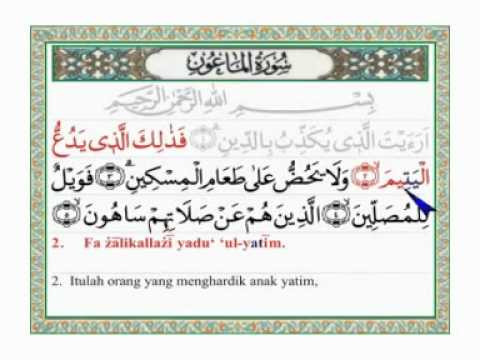 سُورَةُ الْمَاعُونَ
بِسْمِ اللّٰهِ الرَّحْمٰنِ الرَّحِيْمِ
اَرَءَيْتَ الَّذِى يُكَذِّبُ بِالدِّيْنِ ﴿١﴾ فَذٰلِكَ الَّذِى يَدُعُّ
الْيَتِيْمَ ﴿٢﴾ وَلَا يَحُضُّ عَلٰى طَعَامِ الْمِسْكِيْنِ ﴿٣﴾ فَوَيْلٌ
لِلْمُصَلِّيْنَ ﴿٤﴾ الَّذِيْنَ هُمْ عَنْ صَلَاتِهِمْ سَاهُوْنَ ﴿٥﴾
2. Fa żālikallażī yadu‘ ‘ul-yatīm.
2. Itulah orang yang menghardik anak yatim,